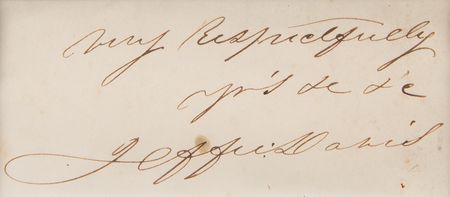 very Respectfully
yr's &c &c
Jeffn: Davis